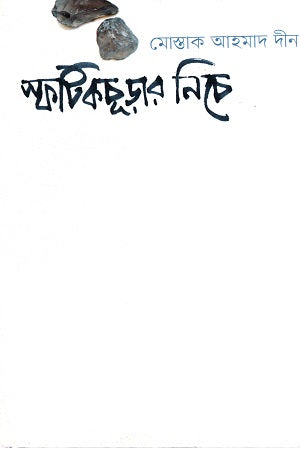 মোস্তাক আহমাদ দীন
স্ফটিকচূড়ার নিচে